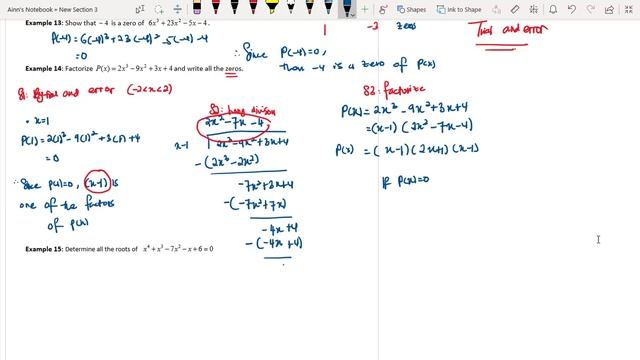 Ainn's Notebook » New Section 3
Ink to Shape
Ink to Math
Example 13: Show that −4 is a zero of 6x³ + 23x² − 5x − 4.
P(-4) = 6(-4)³ + 23(-4)² - 5(-4) - 4
= 0
∴ Since P(-4) = 0,
then -4 is a zero of P(x)
1
-2
zero
Trial and error
Example 14: Factorize P(x) = 2x³ − 9x² + 3x + 4 and write all the zeros.
trial and error (-2<x<2)
• x=1
P(1) = 2(1)³ - 9(1)² + 3(1) + 4
= 0
∴ Since P(1)=0, (x-1) is
one of the factors
of P(x)
S2: long division
2x² - 7x - 4
x-1
2x³ - 9x² + 3x + 4
-(2x³ - 2x²)
-7x² + 3x + 4
-(-7x² + 7x)
-4x + 4
-(-4x + 4)
S3: factorize
P(x) = 2x³ - 9x² + 3x + 4
= (x-1) (2x² - 7x - 4)
P(x) = (x-1) (2x+1) (x-1)
If P(x)=0
Example 15: Determine all the roots of x⁴ + x³ − 7x² − x + 6 = 0